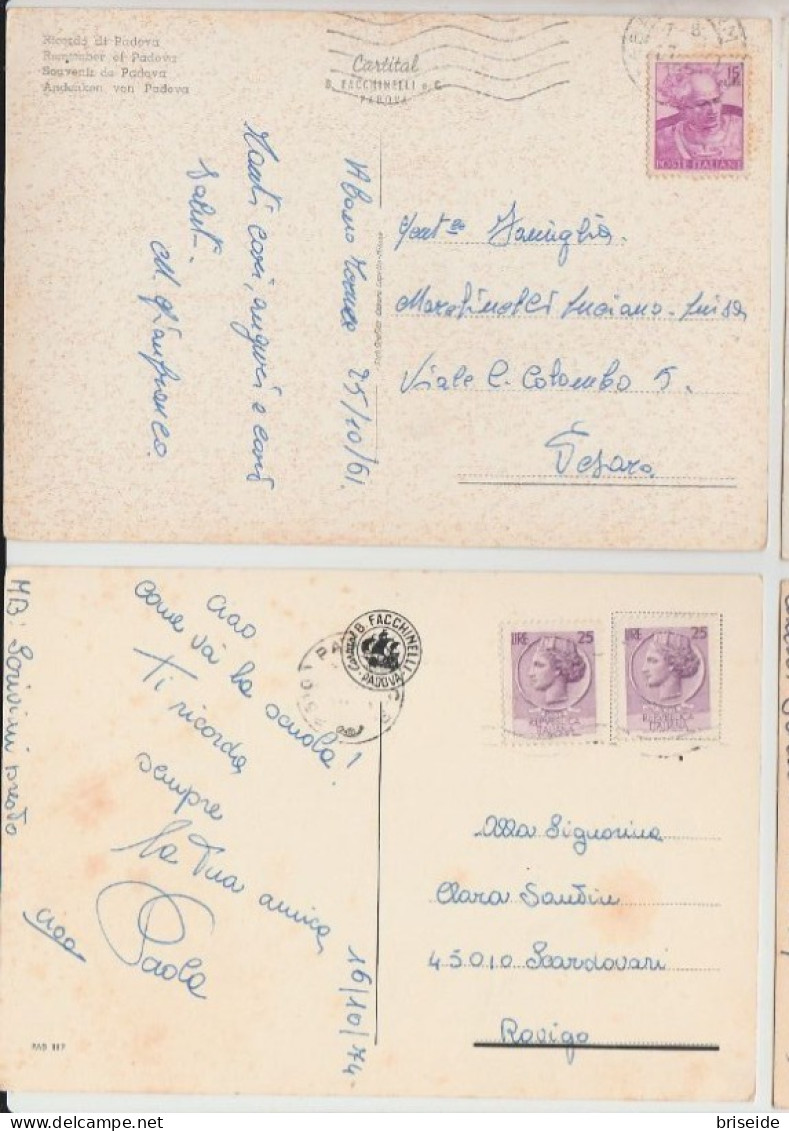 Ricordo di Padova
Remember of Padova
Souvenir de Padova
Andenken von Padova
Cartital
B. FACCHINELLI e C.
PADOVA
15
POSTE ITALIANE
Abano Terme 25/10/61.
Tanti cari, auguri e cari
Saluti
Gianfranco
Gent.ma Famiglia
Luciano-Luisa
Viale C. Colombo 5.
Pesaro
ciao
come và la scuola!
Ti ricorda
sempre
la Tua amica
Paola
ciao
NB: Scrivimi presto
16/10/74
Cartital B. FACCHINELLI
PADOVA
LIRE 25
REPUBBLICA
ITALIANA
LIRE 25
REPUBBLICA
ITALIANA
Alla Signorina
Clara Sandin
45010 Scardovari
Rovigo
briseide